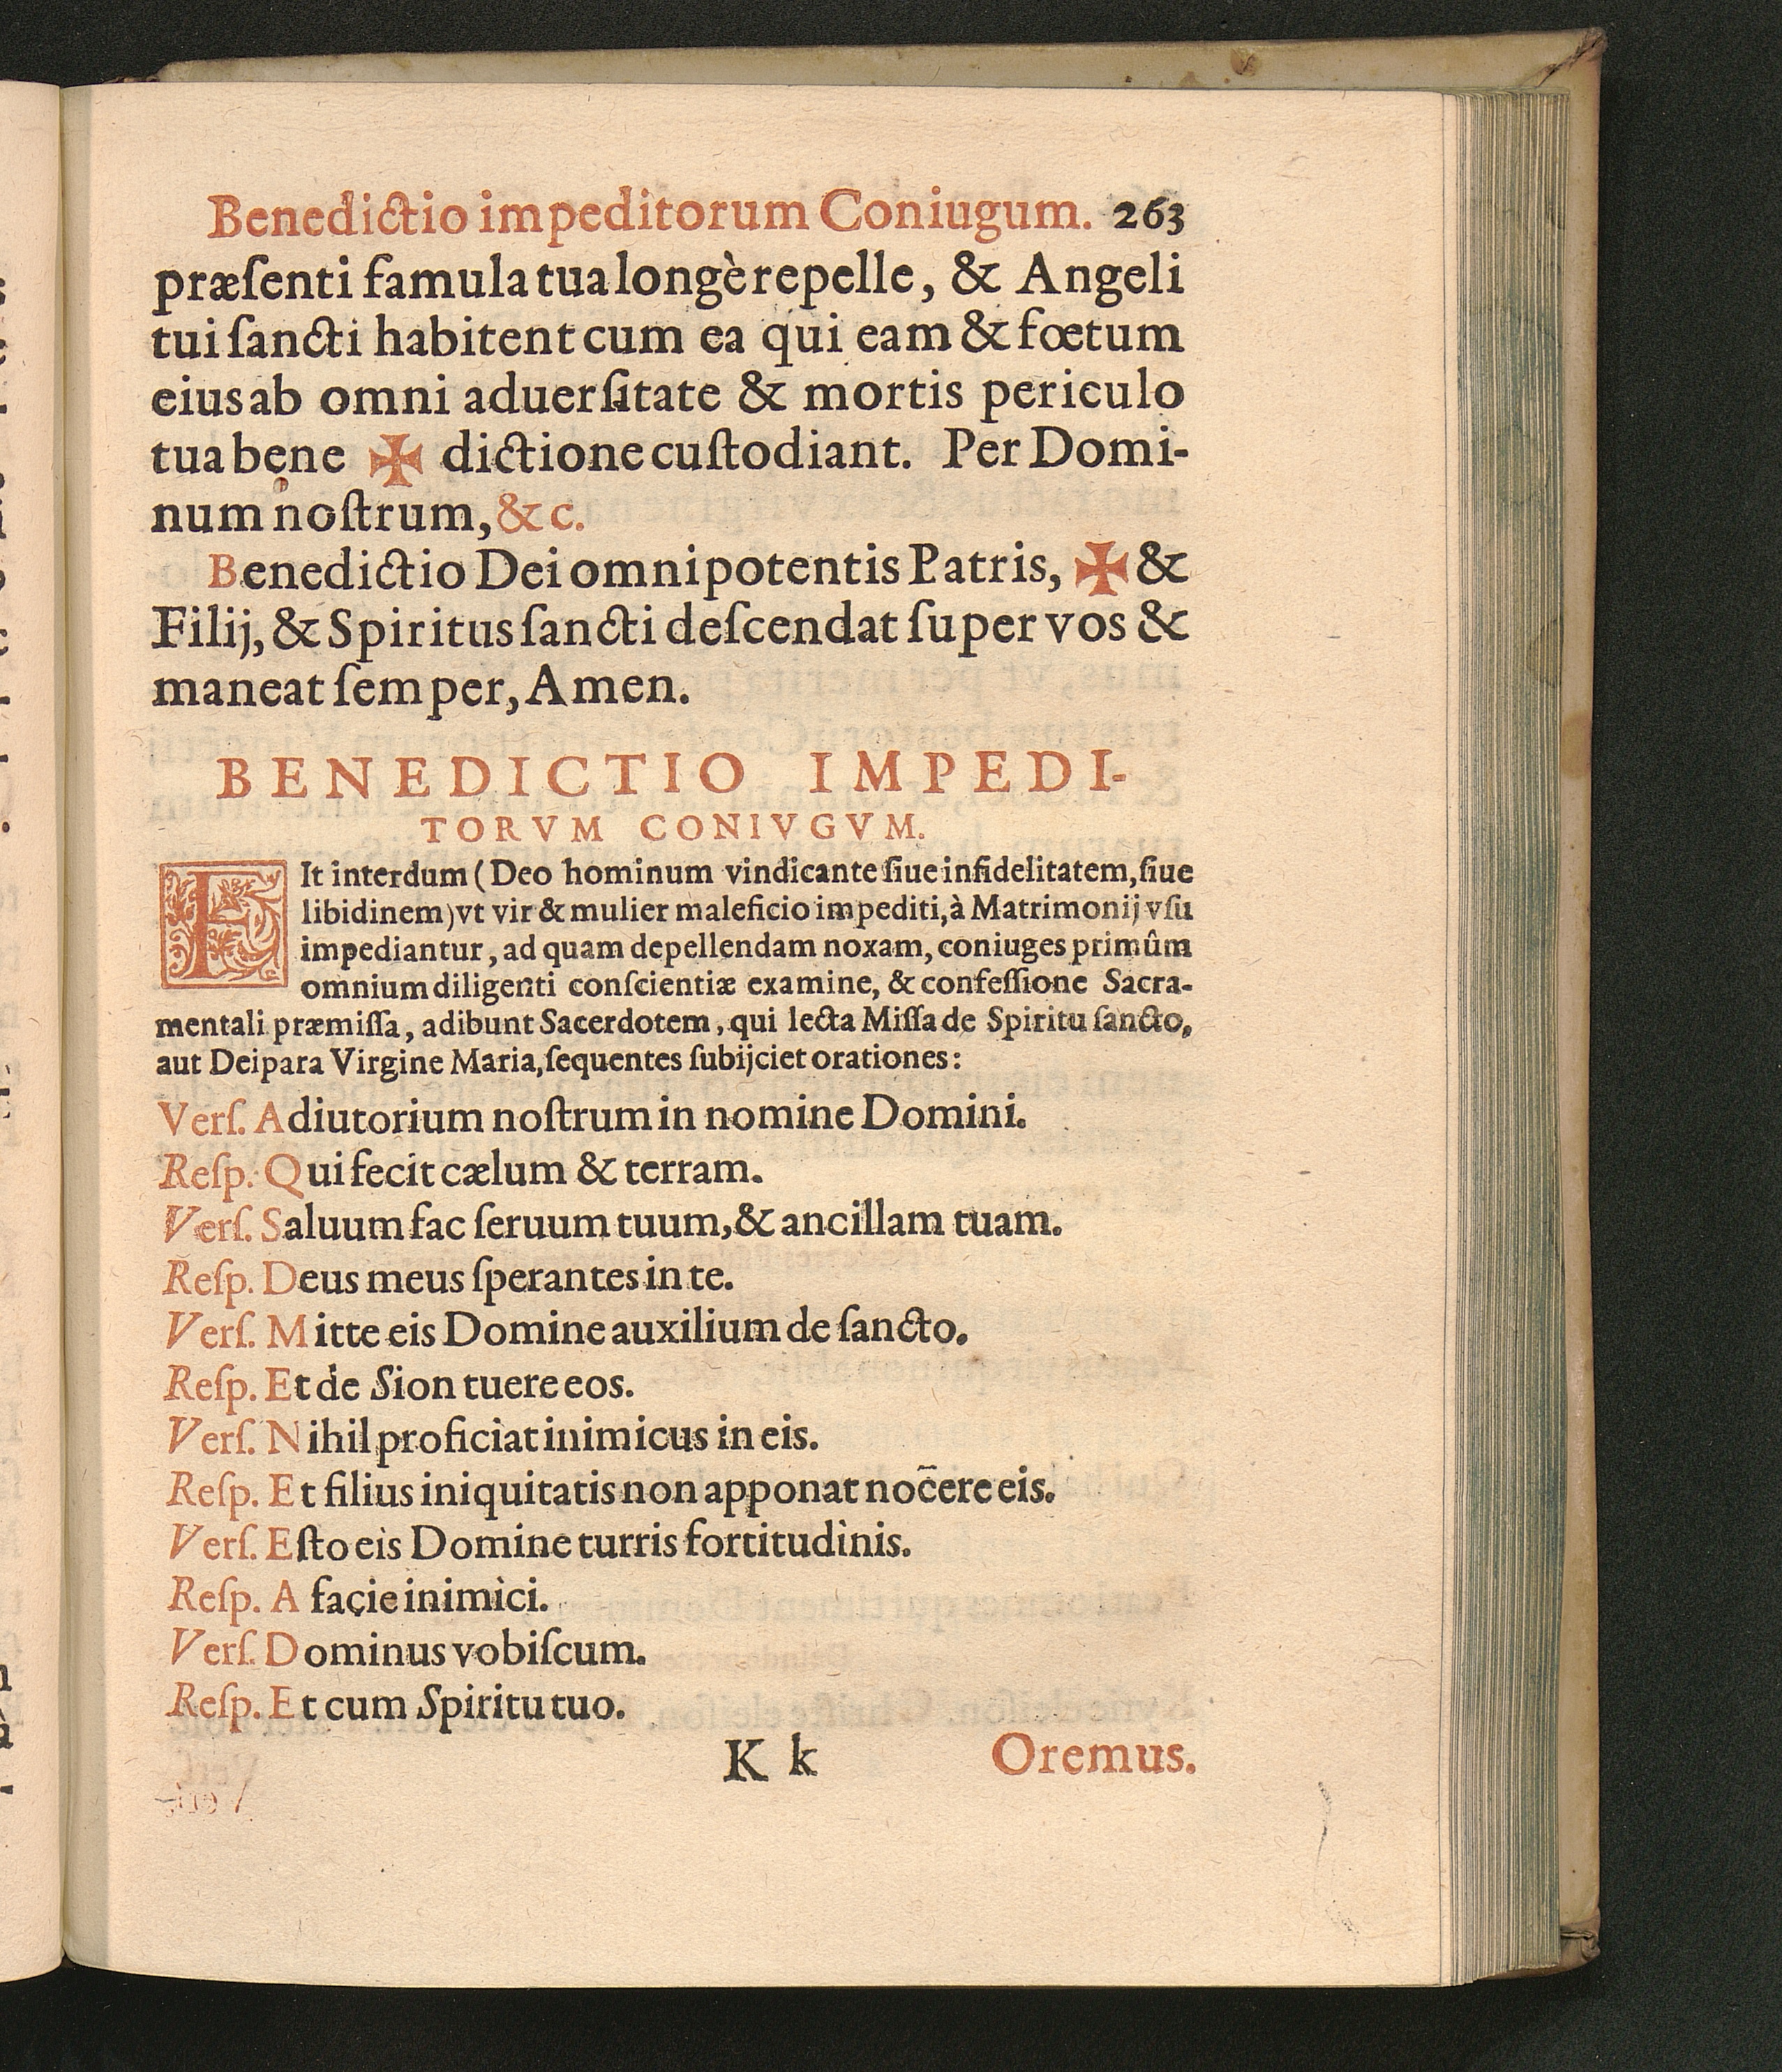 Benedictio impeditorum Coniugum. 263
præſenti famula tua longè repelle, & Angeli
tui ſancti habitent cum ea qui eam & fœtum
eius ab omni aduerſitate & mortis periculo
tua bene ✠ dictione cuſtodiant. Per Domi-
num noſtrum, &c.
Benedictio Dei omnipotentis Patris, ✠ &
Filij, & Spiritus ſancti deſcendat ſuper vos &
maneat ſemper, Amen.
BENEDICTIO IMPEDI-
TORVM CONIVGVM.
FIt interdum (Deo hominum vindicante ſiue infidelitatem, ſiue
libidinem) vt vir & mulier maleficio impediti, à Matrimonij vſu
impediantur, ad quam depellendam noxam, coniuges primûm
omnium diligenti conſcientiæ examine, & confeſſione Sacra-
mentali præmiſſa, adibunt Sacerdotem, qui lecta Miſſa de Spiritu ſancto,
aut Deipara Virgine Maria, ſequentes ſubijciet orationes:
Verſ. Adiutorium noſtrum in nomine Domini.
Reſp. Qui fecit cælum & terram.
Verſ. Saluum fac ſeruum tuum, & ancillam tuam.
Reſp. Deus meus ſperantes in te.
Verſ. Mitte eis Domine auxilium de ſancto.
Reſp. Et de Sion tuere eos.
Verſ. Nihil proficiat inimicus in eis.
Reſp. Et filius iniquitatis non apponat nocere eis.
Verſ. Eſto eis Domine turris fortitudinis.
Reſp. A facie inimici.
Verſ. Dominus vobiſcum.
Reſp. Et cum Spiritu tuo.
K k Oremus.